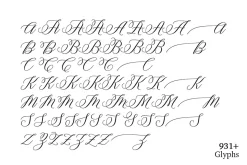 A A A A A A A A A
B B B B B B B B B
C C C C C C
K K K K K K K K K
M M M M M M M M
S S S S S S S S
Z Z Z Z Z Z Z
931+
Glyphs